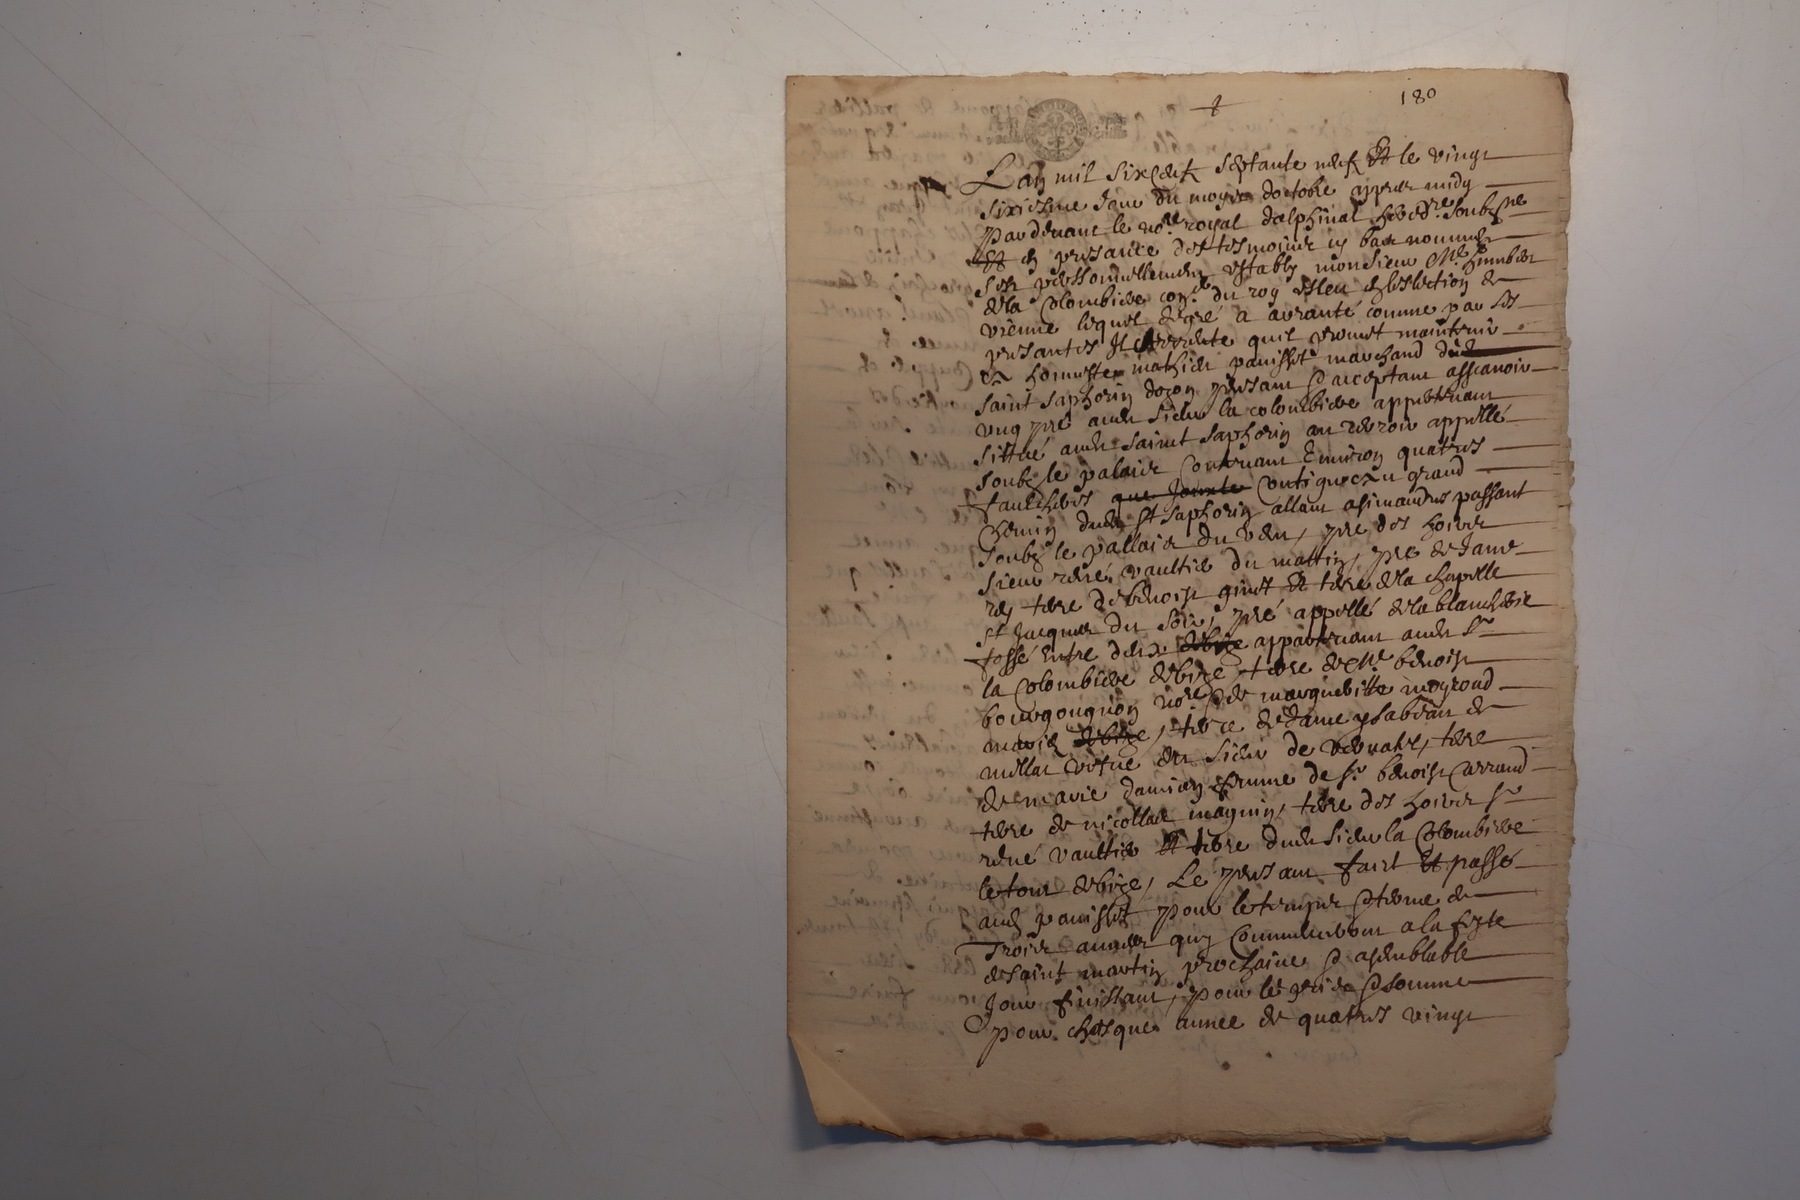 180
Lan mil six cent septante neuf Et le vingt
sixiesme Jour du moys doctobre appres midy
par devant le no.re royal dalphinal hered.re soubz.ne
Et en presance des tesmoins cy bas nommes
sest personnellement establi monsieur Me humbert
de la Colombiere con.er du roy esleu en leslection de
vienne lequel de gré a arranté comme par ces
presantes Il arrente quil promet maintenir
a honneste mathieu panisset marchand dud
saint saphorin dozon presant & acceptant assavoir
ung pré aud sieur la colombiere appartenant
sittué aud saint saphorin au terroir appellé
soubz le palais Contenant Environ quatres
faulchees que Jouxte Contigue au grand
Chemin dud st saphorin allant a simandres passant
soubz le pallais du vent, pré des hoirs
sieur rené vaultier du mattin, pré de Jane
rey terre de benoist ginet Et terre de la chapelle
st Jacques du soir, pré appellé de la blancherie
fossé Entre deux de bize appartenant aud sr
la Colombiere de bize terre de Me benoist
bourgonguion no.re & de margueritte moyroud
mariés de bize, terre de dame ysabeau de
millat vefve du sieur de vernatz, terre
de marie damian femme de sr benoist Carrand
terre de nicollas magnin, terre des hoirs sr
rené vaultier Et terre dud sieur la Colombiere
le tout de bize, Le presant fait Et passé
aud panisset pour le temps & terme de
Trois annees quy Commenceront a la feste
de saint martin prochaine & a semblable
Jour finissant, pour le prix & somme
pour chasque annee de quatres vingt